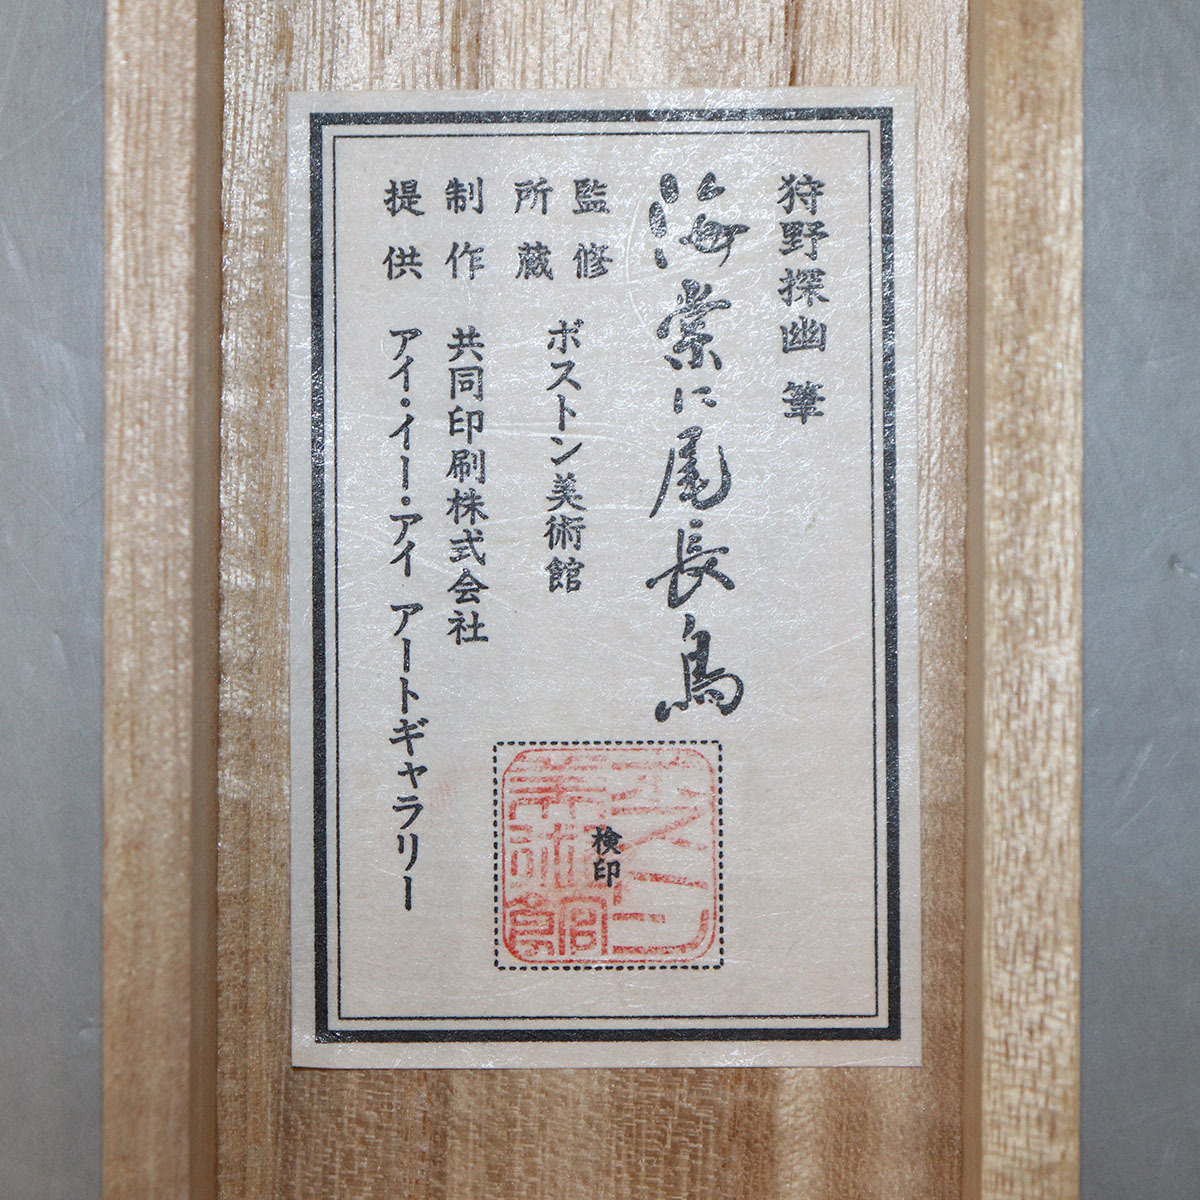 狩野探幽 筆
海棠に尾長鳥
監修
所蔵
ボストン美術館
制作 共同印刷株式会社
提供 アイ・イー・アイ アートギャラリー
検印
ボストン美術館